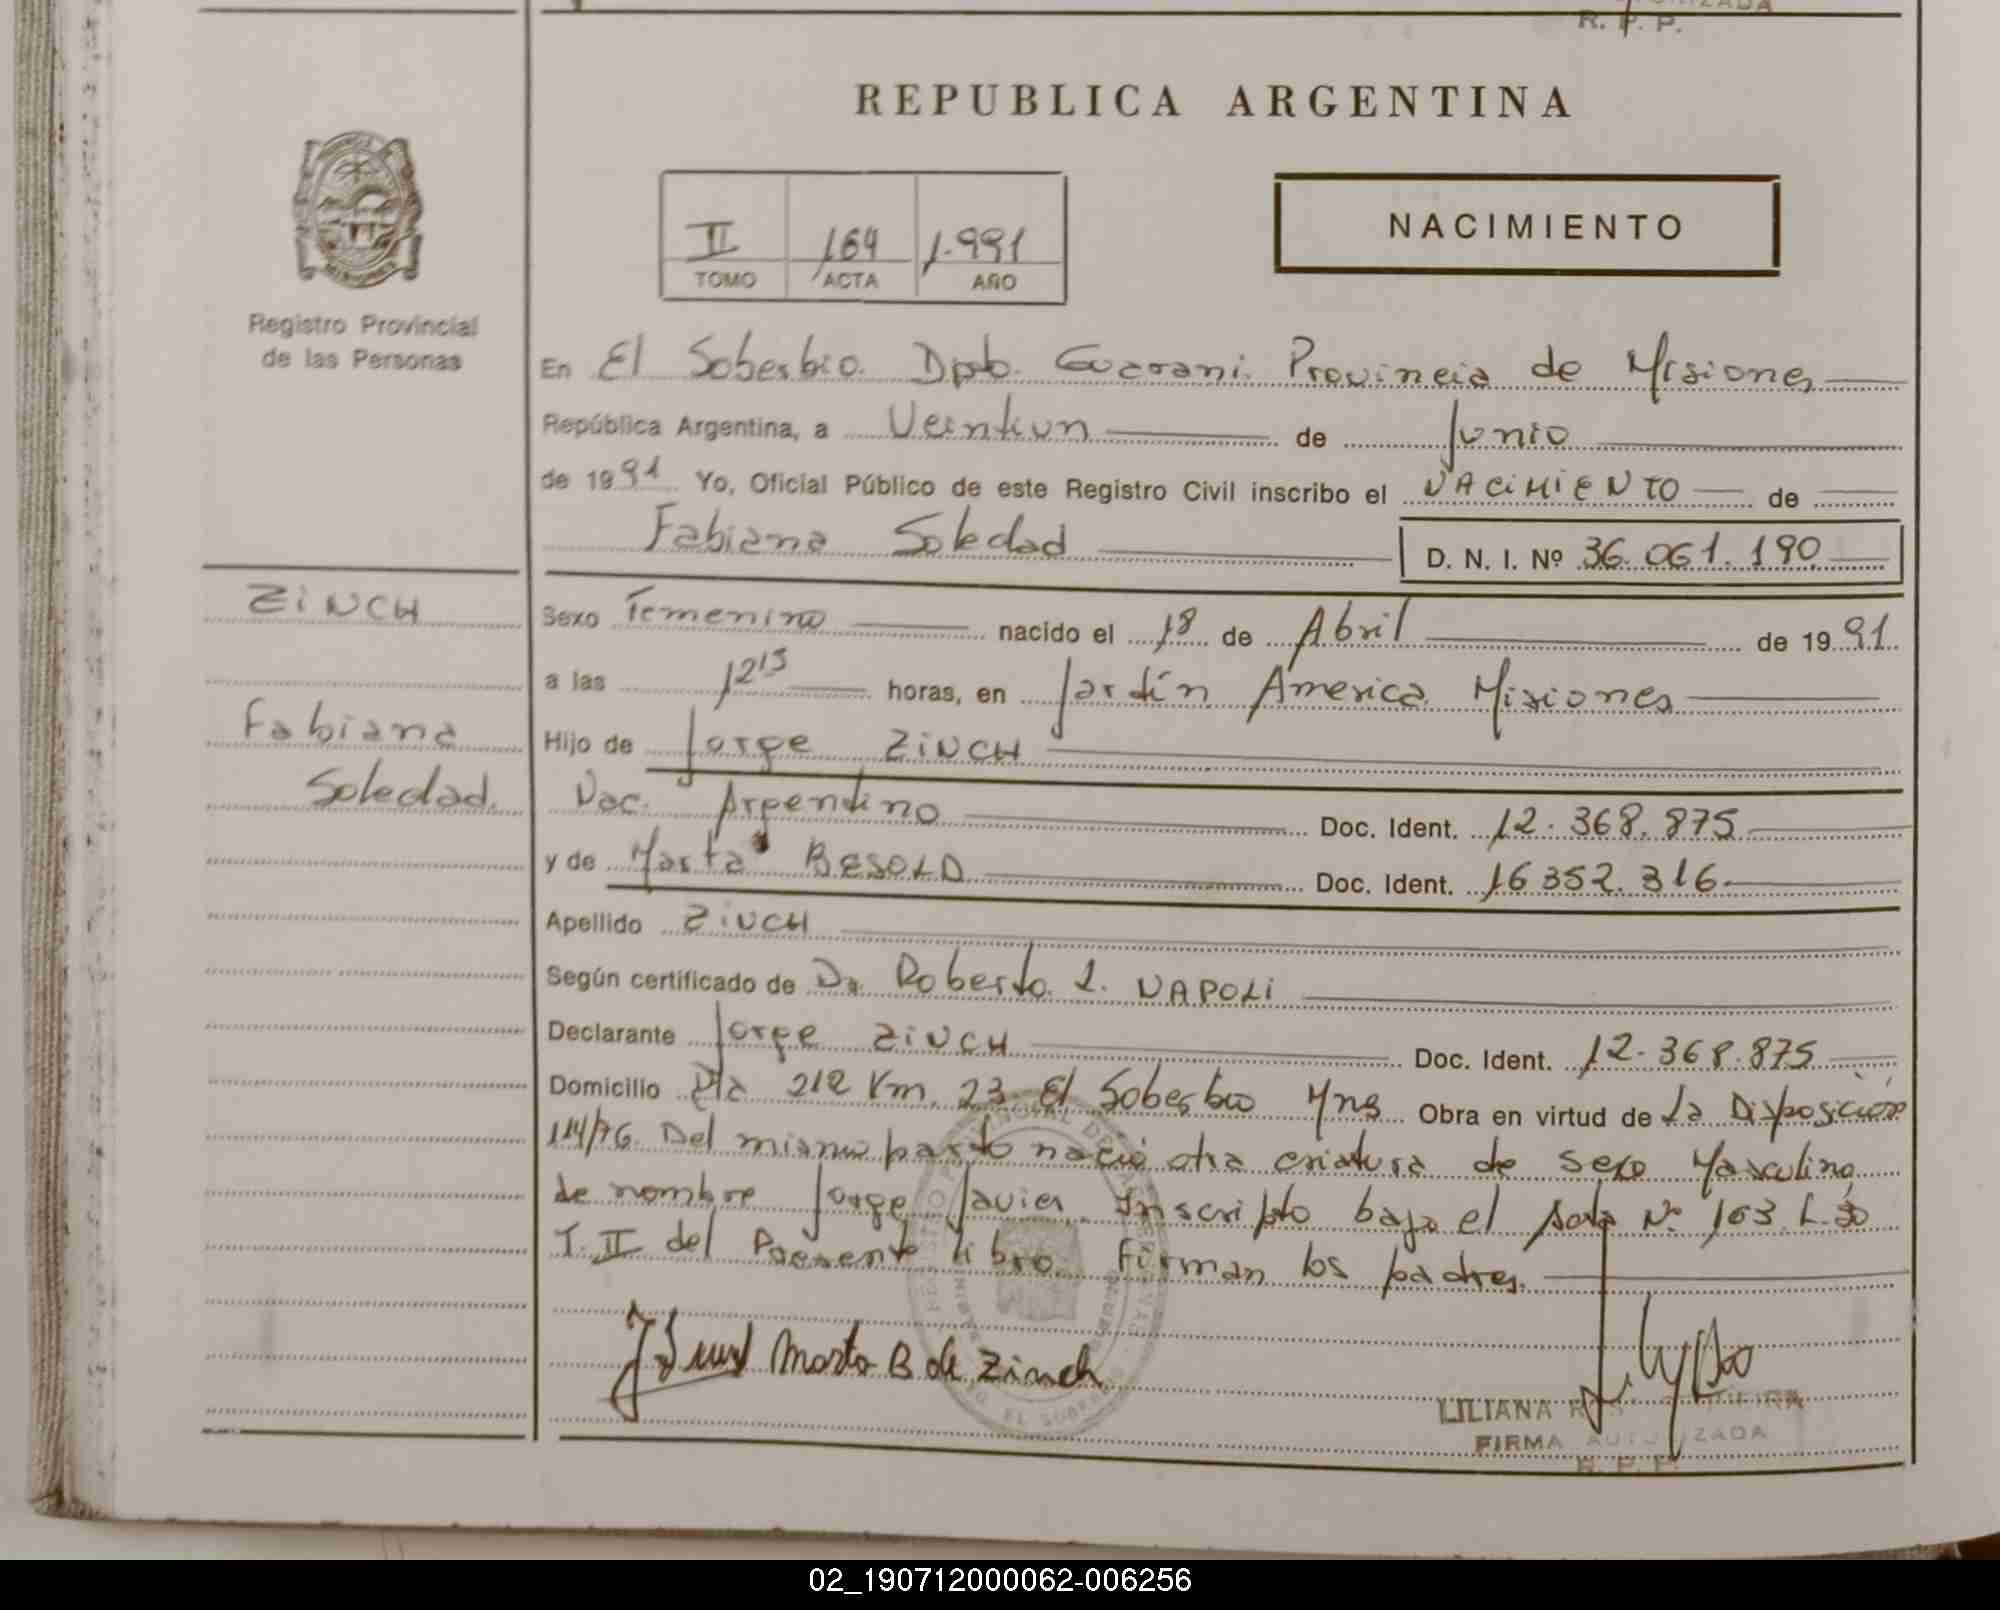 R. P. P.
REPUBLICA ARGENTINA
II 164 1.991
TOMO ACTA AÑO
NACIMIENTO
Registro Provincial
de las Personas
En El Soberbio. Dpto. Guarani. Provincia de Misiones
República Argentina, a Veintiun de Junio
de 1991 Yo, Oficial Público de este Registro Civil inscribo el NACIMIENTO de
Fabiana Soledad D. N. I. Nº 36.061.190
ZINCH
Fabiana
Soledad.
Sexo Femenino nacido el 18 de Abril de 1991.
a las 12 15 horas, en Jardín America Misiones
Hijo de Jorge ZINCH
Nac. Argentino Doc. Ident. 12.368.875
y de Marta BESOLD Doc. Ident. 16352.316
Apellido ZINCH
Según certificado de Dr. Roberto. L. NAPOLI
Declarante Jorge ZINCH Doc. Ident. 12.368.875
Domicilio Rta 212 Km. 23 El Soberbio Mns Obra en virtud de La Disposición
114/76. Del mismo parto nació otra criatura de sexo Masculino
de nombre Jorge Javier. Inscripto bajo el Acta Nº 163. L.
T. II del Presente libro. Firman los padres.
Marta B de Zinch
LILIANA
FIRMA AUTORIZADA
R. P. P.
02_190712000062-006256